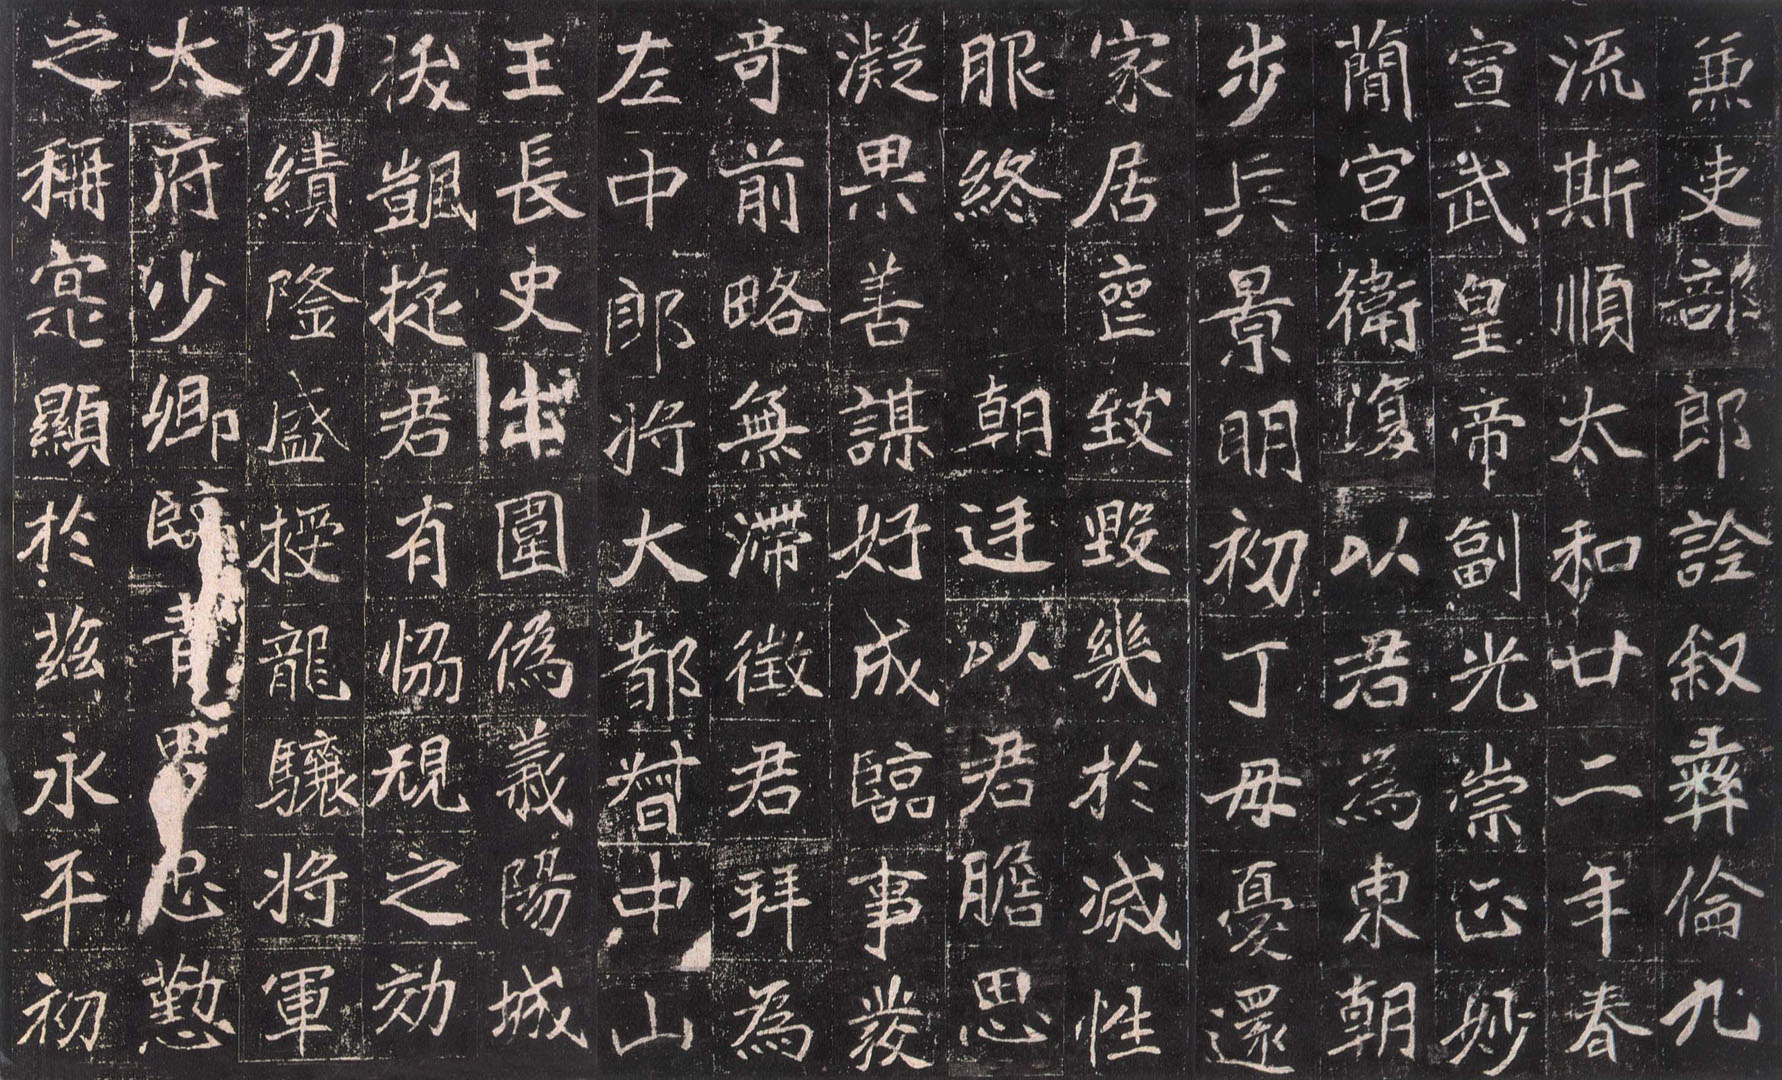 兼吏部郎詮叙彝倫九
流斯順太和廿二年春
宣武皇帝副光崇正妙
簡宮衛復以君為東朝
步兵景明初丁母憂還
家居喪致毀幾於滅性
服終 朝廷以君膽思
凝果善謀好成臨事發
奇前略無滯徵君拜為
左中郎將大都督中山
王長史出圍偽義陽城
拔凱旋君有協規之効
功績隆盛授龍驤將軍
太府少卿臨青男忠懃
之稱寔顯於茲永平初